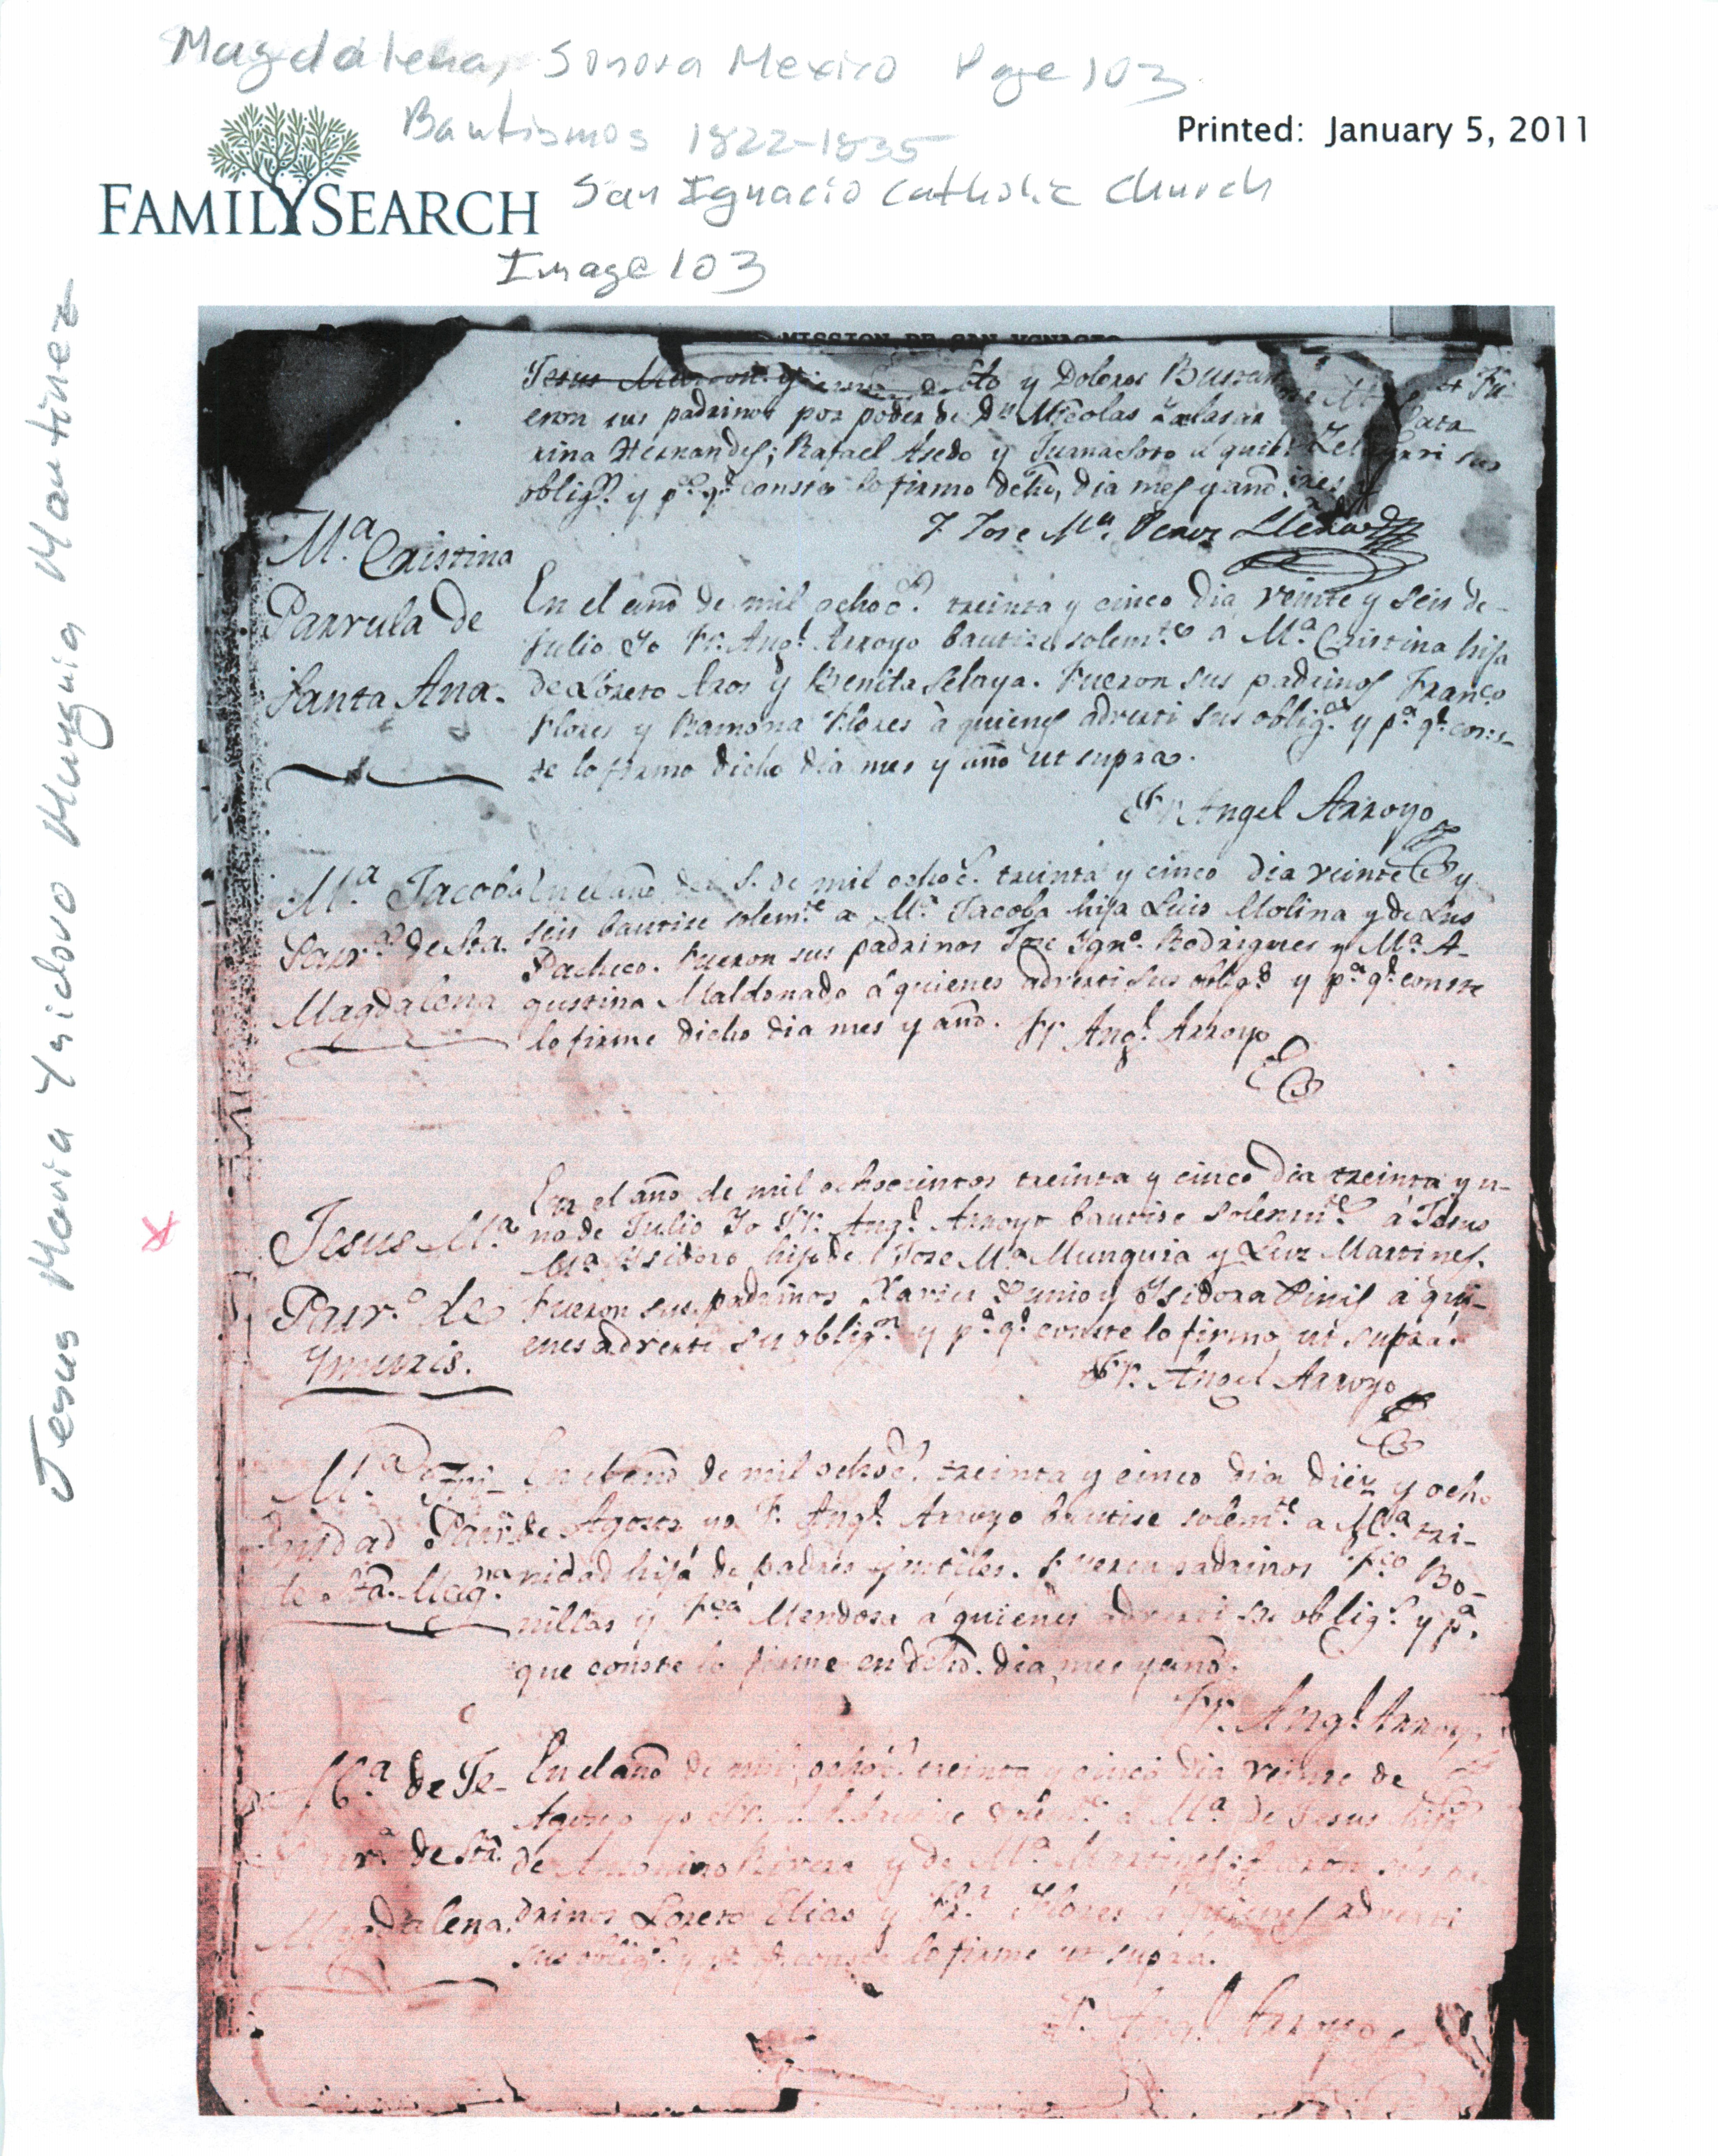 Magdalena, Sonora Mexico Page 103
Bautismos 1822-1835
Printed: January 5, 2011
FAMILYSEARCH
San Ignacio Catholic Church
Image 103
Jesus Maria Ysidoro Munguia Martinez
MISSION DE SAN YGNACIO
y Dolores Fu-
eron sus padrinos por poder de Dn Nicolas Salasar Cata
rina Hernandes; Rafael Asedo y Juana Soto á quie sus
oblig.s y pa. qe. conste lo firmo dcho, dia mes y año
F. Jose Ma. Perez Llera
Ma. Cristina
Parvula de
Santa Ana.
En el año de mil ochoc.s treinta y cinco dia veinte y seis de-
Julio Yo Fr. Angl. Arroyo bautise solem.te á Ma. Cristina hija
de Loreto Aros y Benita Selaya. Fueron sus padrinos Franco
Flores y Ramona Flores à quienes adverti sus oblig.as y pa. qe. cons-
te lo firmo dicho dia mes y año ut supra.
Fr. Angel Arroyo
Ma. Jacoba
Parv.a de Sta.
Magdalena
En el año del S. de mil ochoc.s treinta y cinco dia veinte y
seis bautise solem.te a Ma. Jacoba hija Luis Molina y de Lus
Pacheco. Fueron sus padrinos Jose Ygno. Rodrigues y Ma. A-
gustina Maldonado á quienes adverti sus oblig.s y pa. qe. conste
lo firme dicho dia mes y año. Fr. Angl. Arroyo
Jesus Ma.
Parv.o de
Ymuris.
En el año de mil ochocientos treinta y cinco Dia treinta y u-
no de Julio Yo Fr. Angl. Arroyo bautise solemte. á Jesus
Ma. Ysidoro hijo de Jose Ma. Munguia y Luz Martines.
Fueron sus padrinos Xavier y Ysidora á qui-
enes adverti su oblig.n y pa. qe. conste lo firmo ut suprá.
Fr. Angel Arroyo
Ma. Tri-
nidad Parv.
de Sta. Magna.
En el año de mil ochoc.s treinta y cinco dia diez y ocho
de Agosto yo F. Angl. Arroyo bautise solem.te a Ma. Tri-
nidad hija de padres jentiles. Fueron padrinos Fco Bo-
nillas y Fca Mendosa á quienes adverti su oblig.n y pa.
que conste lo firme en dcho. dia, mes y año.
Fr. Angl. Arroyo
Ma. de Je-
Parv.a de Sta.
Magdalena.
En el año de mil ochoc.s treinta y cinco dia veinte de
Agosto yo bautise solem.te a Ma. de Jesus hija
de Antonino Rivera y de Ma. Martines: fueron sus pa
drinos Loreto Elias y Fca. Flores á quienes adverti
sus oblig.s y pa. qe. conste lo firme ut supra.
F. Angl. Arroyo